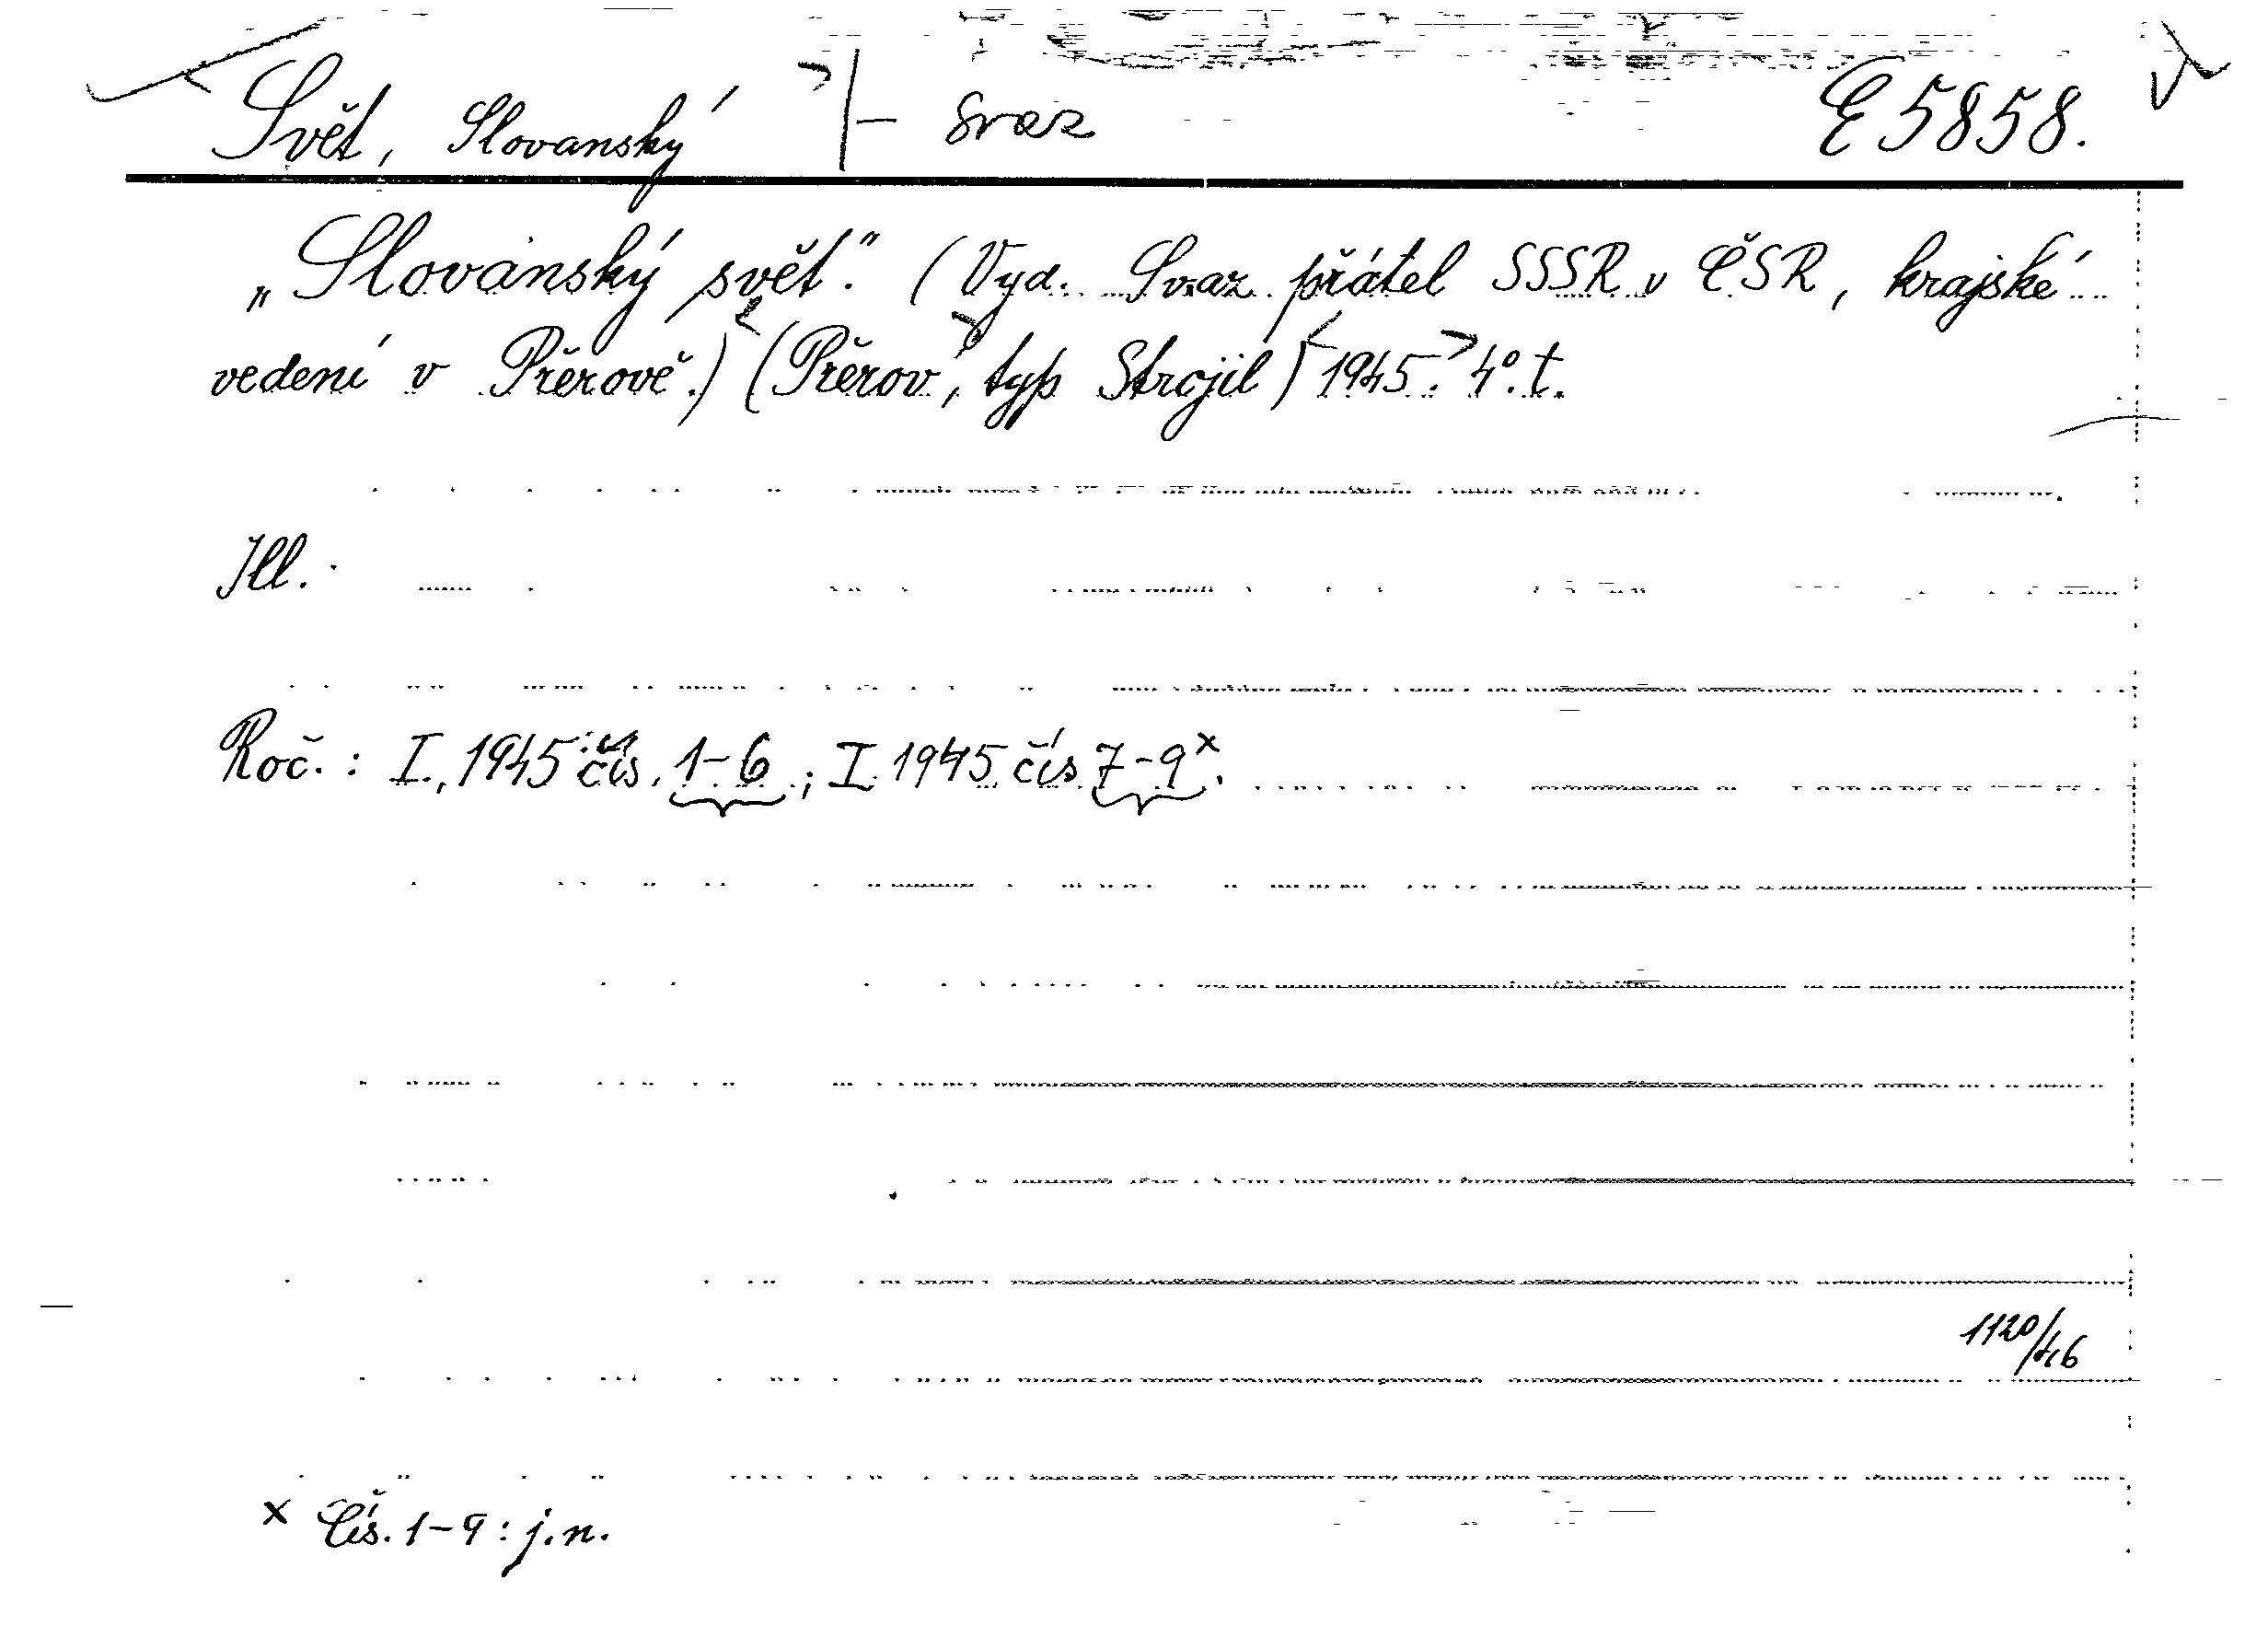 Svět, Slovanský - svaz E 5858.
„Slovanský svět." (Vyd. Svaz přátel SSSR v ČSR, krajské
vedení v Přerově.) (Přerov, typ Strojil) 1945. 4°. t.
Ill.
Roč.: I., 1945 čís. 1-6; I. 1945 čís 7-9x.
1120/46
x Čís. 1-9: j. n.